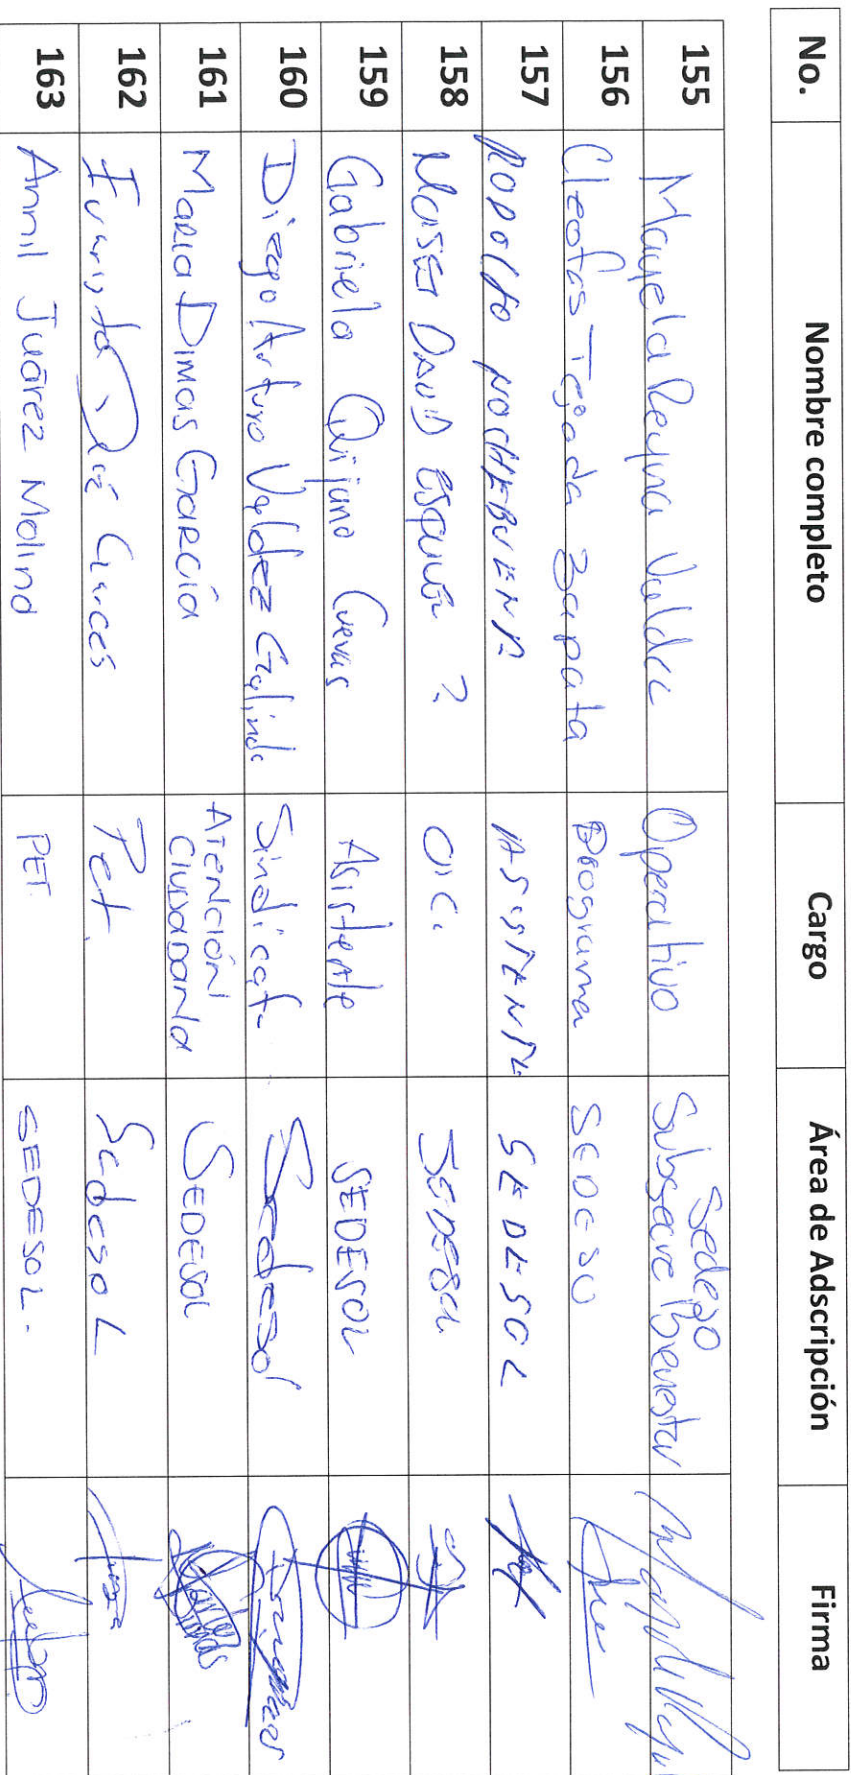 No. Nombre completo Cargo Área de Adscripción Firma
155 Mayela Reyna Valdez Operativo Sedeso
Subsecre Bienestar
156 Cleofas Tejada Zapata Programa SEDESO
157 RODOLFO NOCHEBUENA ASISTENTE SEDESOL
158 DAVID O.C. SEDESOL
159 Gabriela Quijano Cuevas Asistente SEDESOL
160 Diego Arturo Valdez Galindo Sindicat. Sedesol
161 MARIA DIMAS GARCÍA ATENCIÓN
CIUDADANA SEDESOL
162 Garcés Pet. Sedesol
163 Annil Juárez Molina PET. SEDESOL.